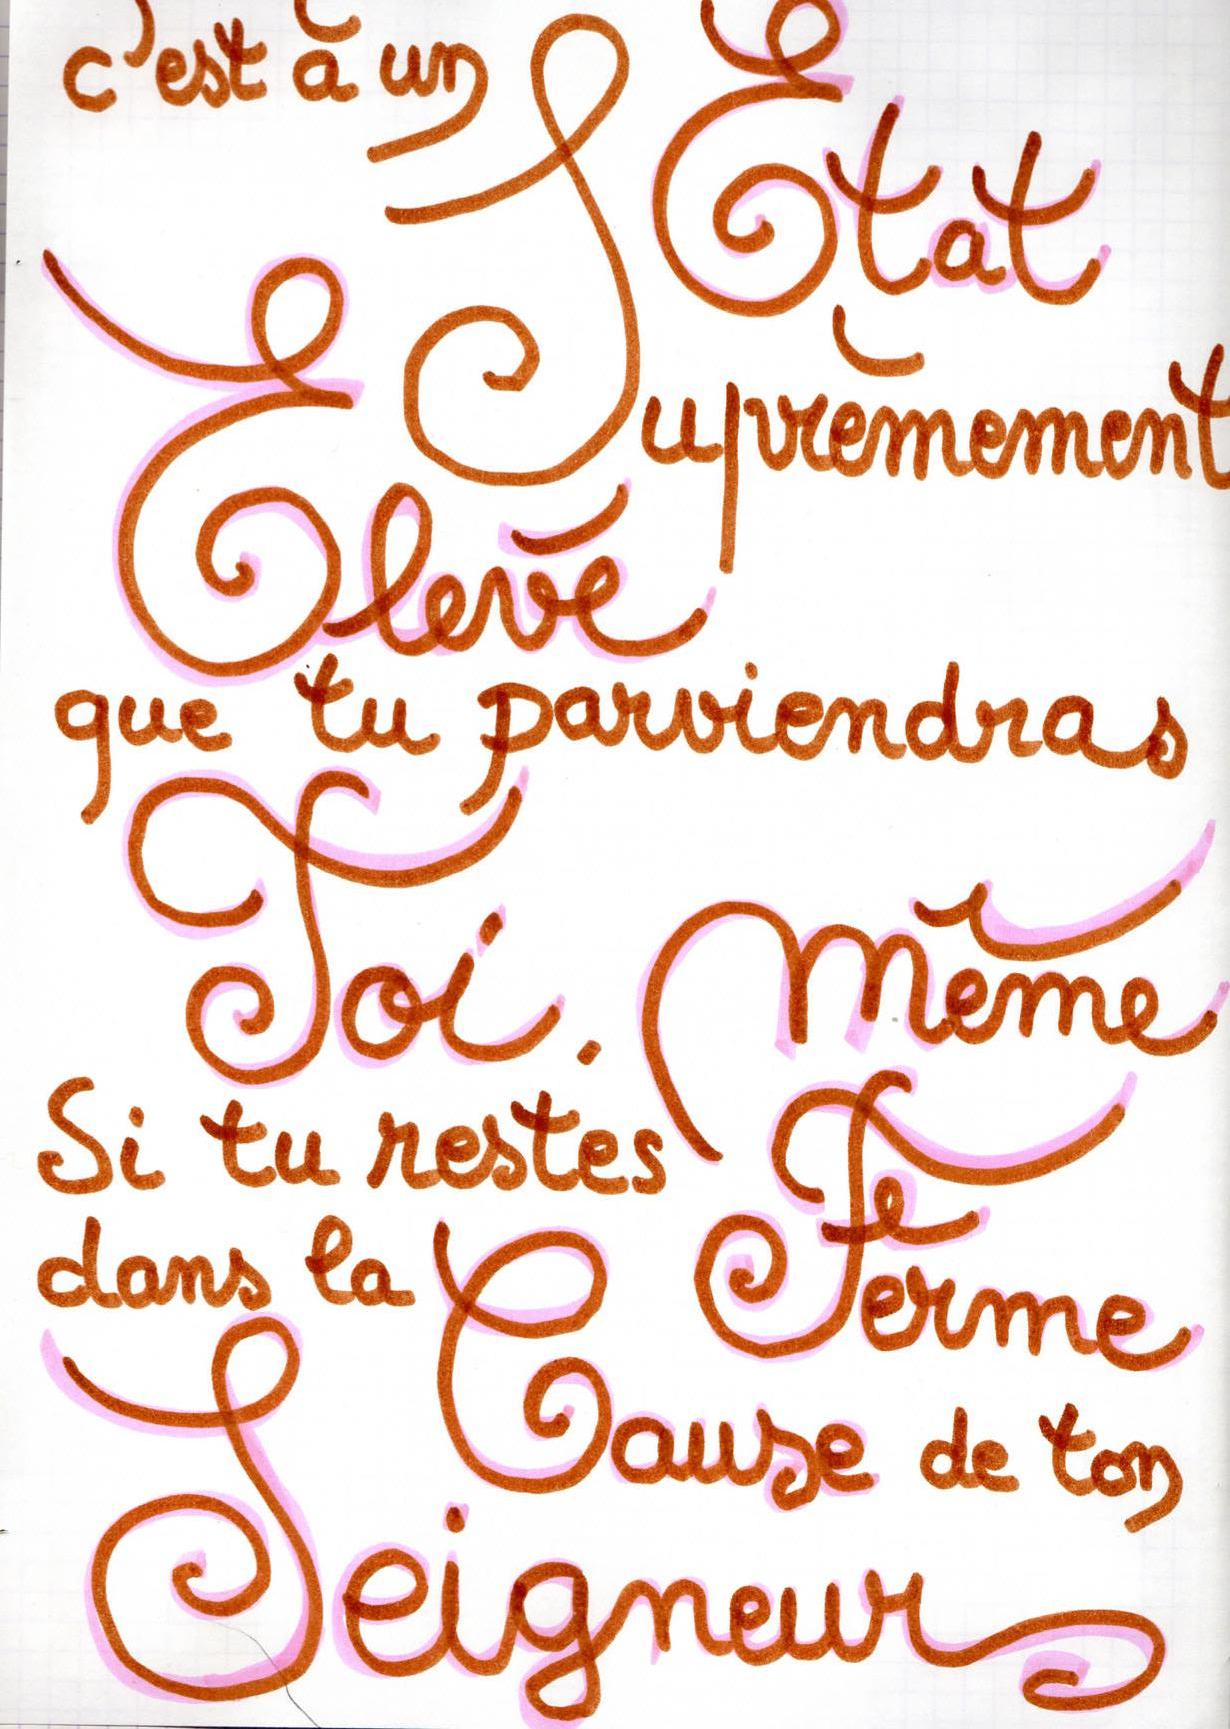 c'est à un Etat
Suprêmement
Elevé
que tu parviendras
Toi. même
Si tu restes Ferme
dans la Cause de ton
Seigneur